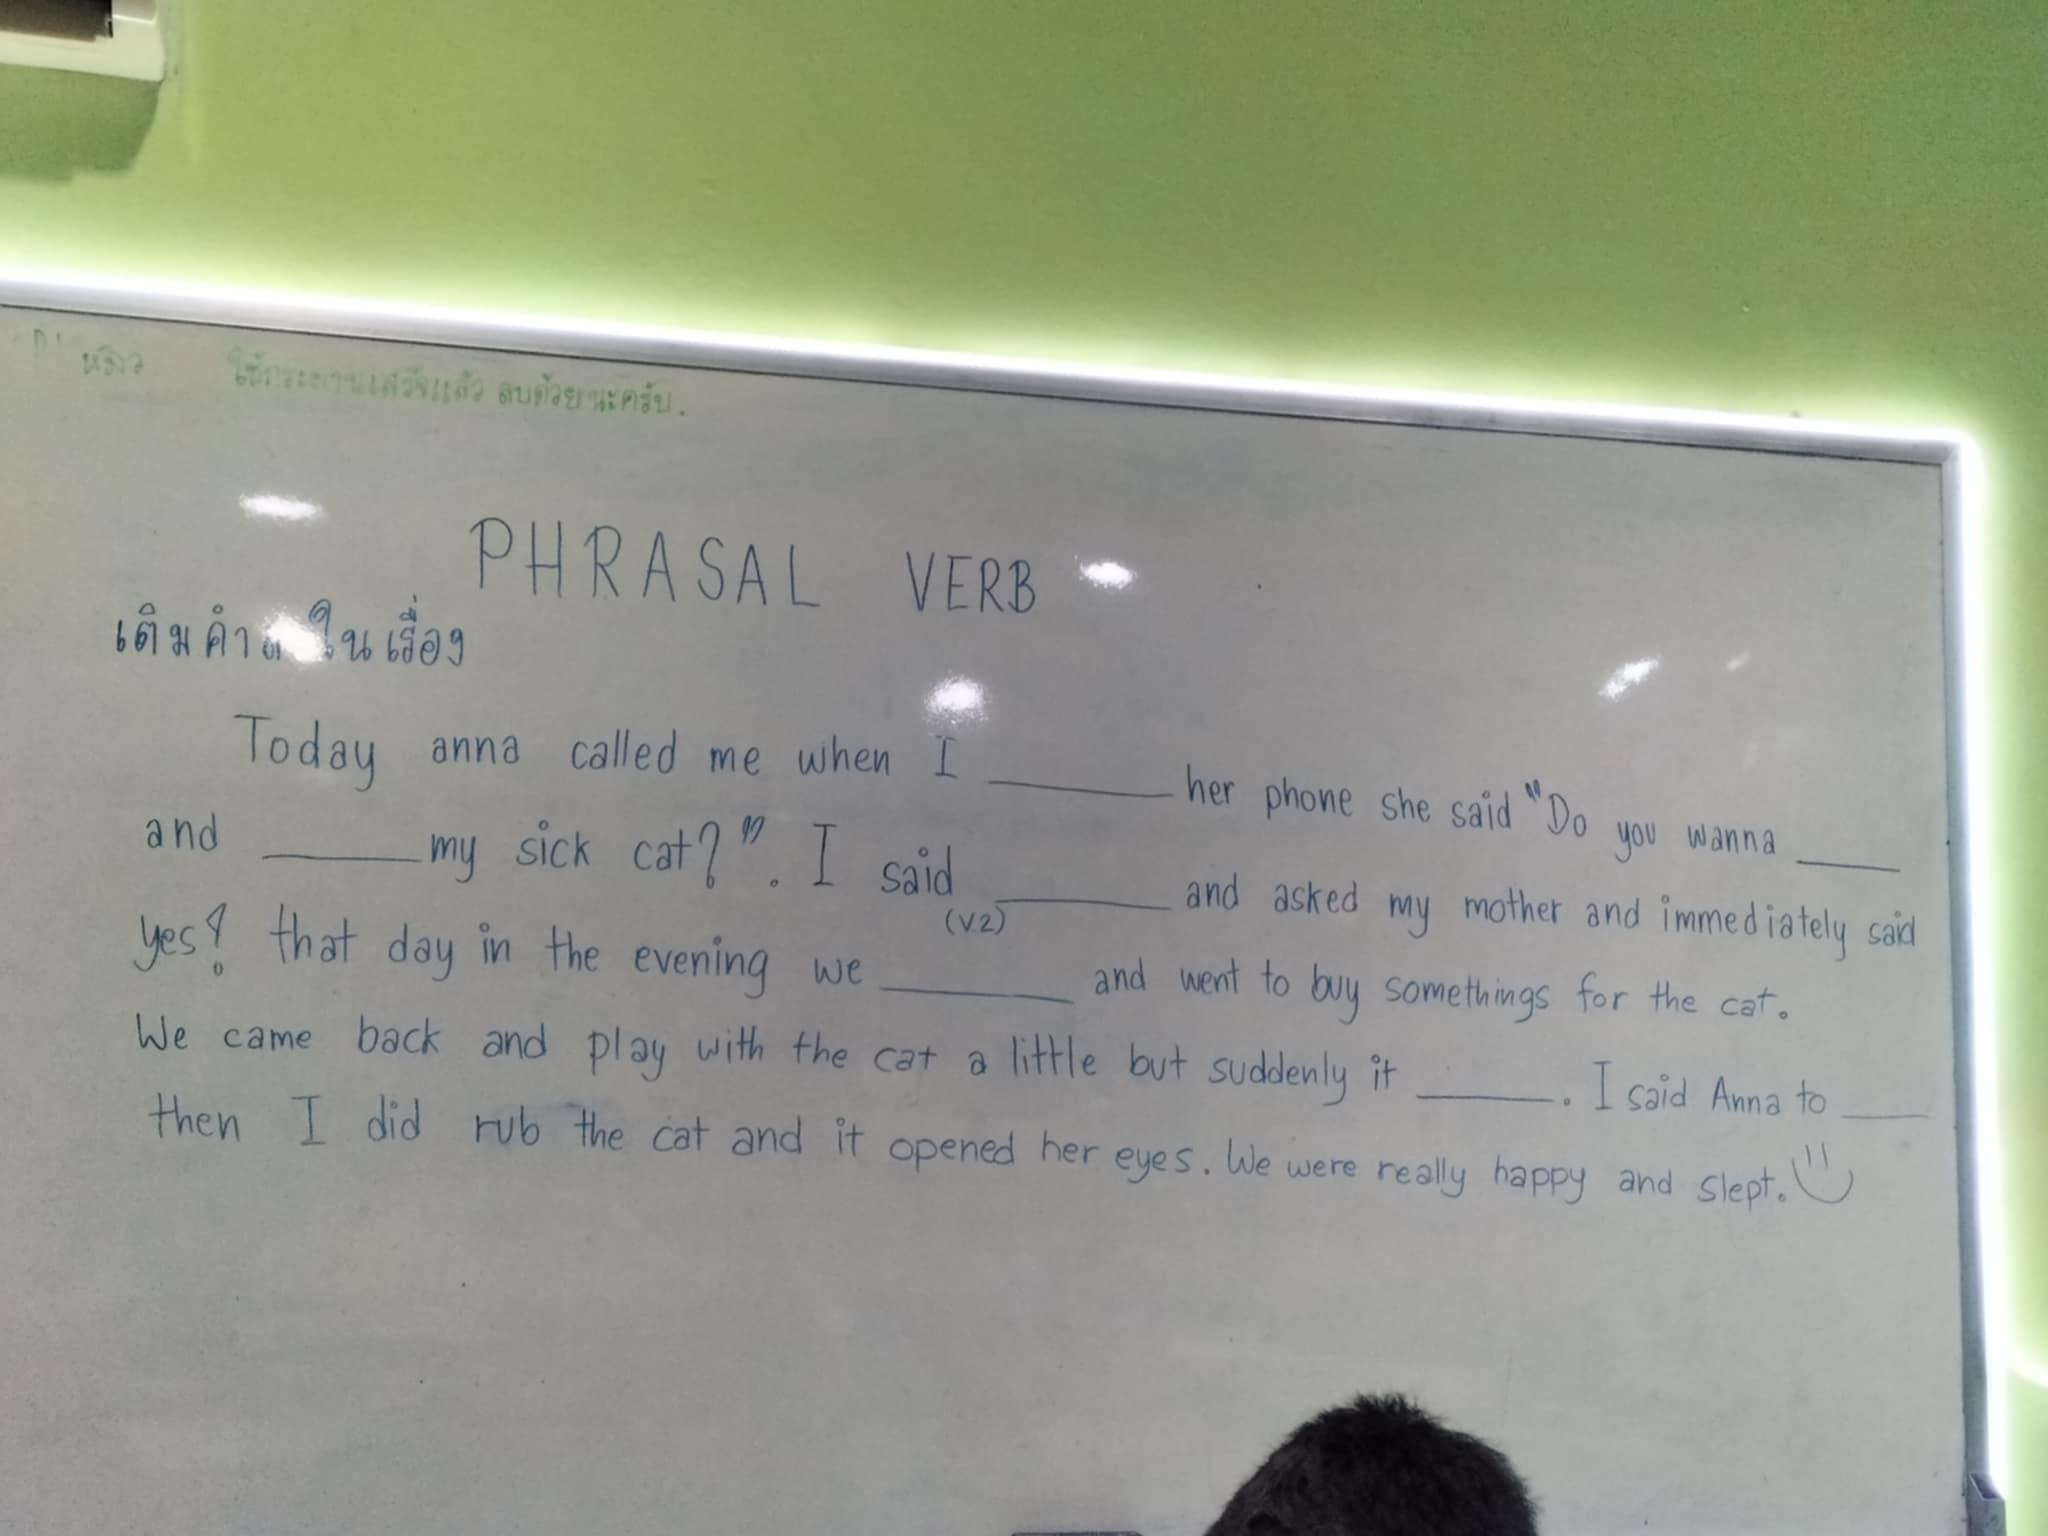 หลิว ใช้กระดานเสร็จแล้ว ลบด้วยนะครับ.
PHRASAL VERB
เติมคำ ในเรื่อง
Today anna called me when I ________ her phone she said "Do you wanna ____
and ______ my sick cat?". I said ______ and asked my mother and immediately said
(V2)
yes! that day in the evening we ________ and went to buy somethings for the cat.
We came back and play with the cat a little but suddenly it ______. I said Anna to ____
then I did rub the cat and it opened her eyes. We were really happy and slept.